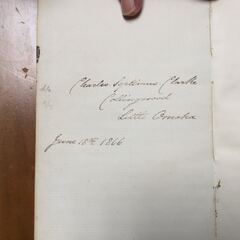 Charles Septimus Clarke
Collingwood
Little Omaha
June 18th 1866